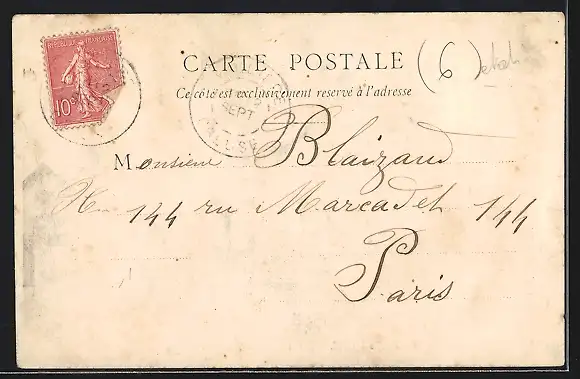 REPUBLIQUE FRANÇAISE
10c
CARTE POSTALE
(6)
Ce côté est exclusivement reservé à l'adresse
SEPT
Monsieur Blaizand
144 ru Marcadet 144
Paris